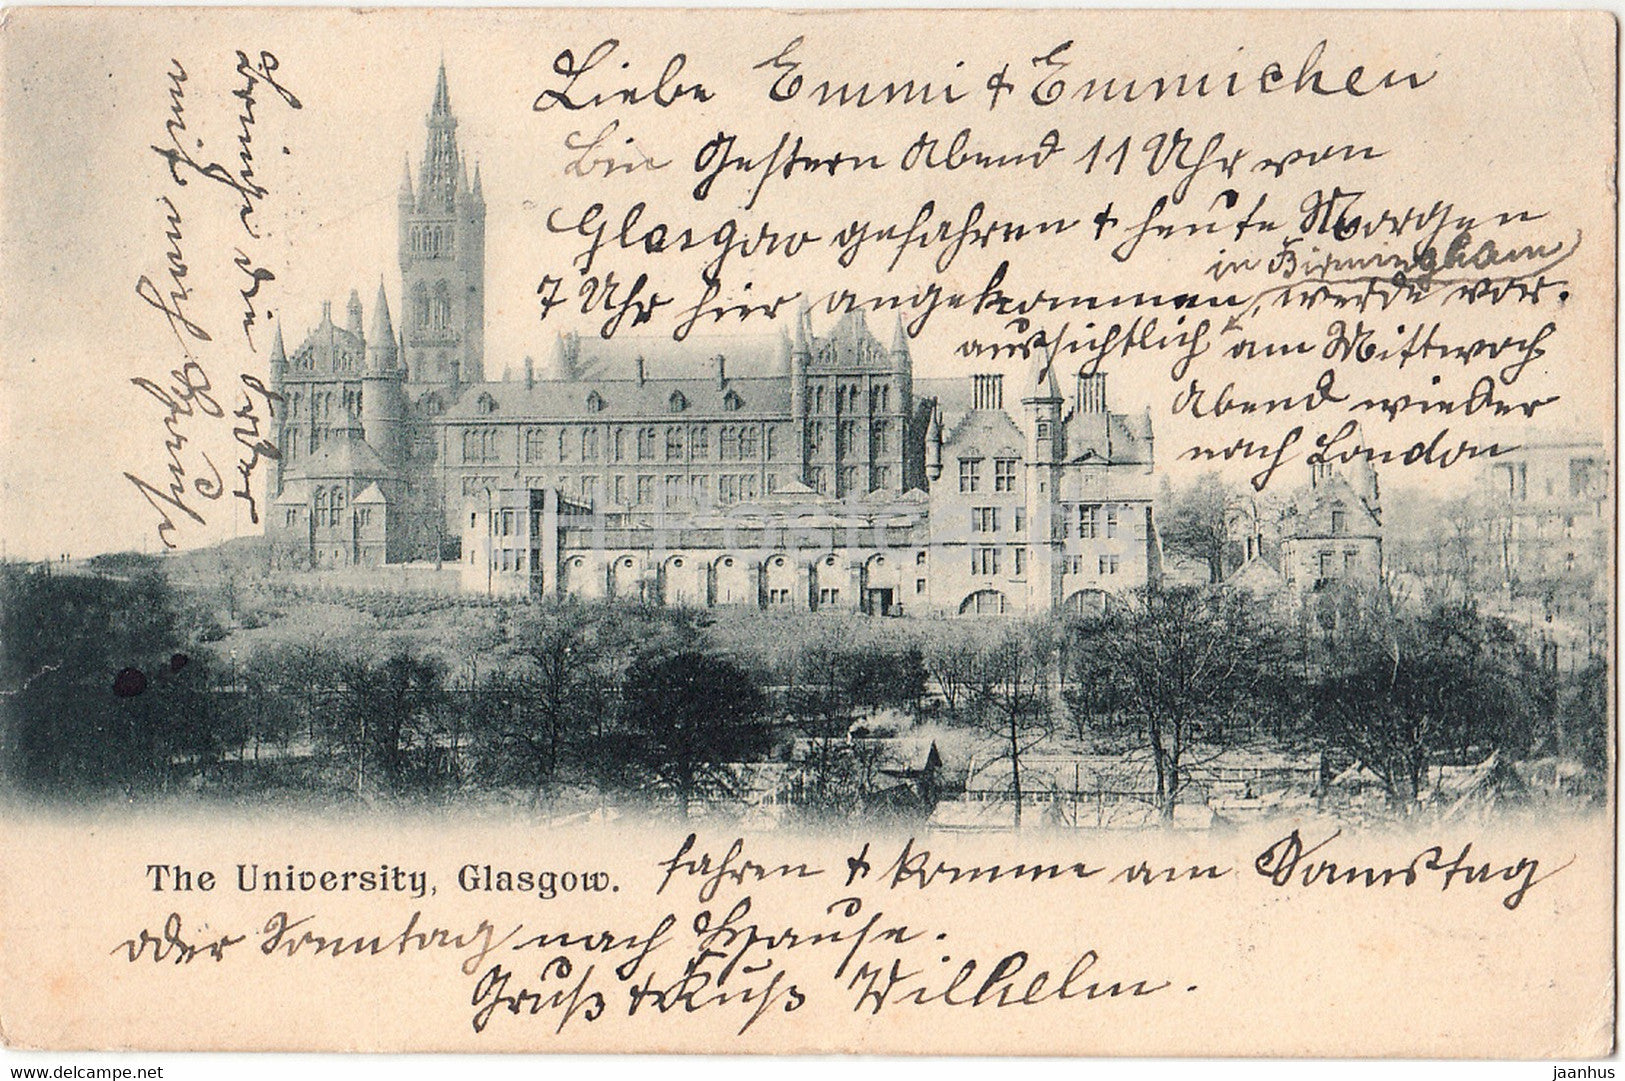 Liebe Emmi & Emmichen
Bin Gestern Abend 11 Uhr von
Glasgow gefahren & heute Morgen
in Birmingham
7 Uhr hier angekommen, werde vor-
aussichtlich am Mittwoch
Abend wieder
nach London
fahren & komme am Samstag
oder Sonntag nach Hause.
Gruß & Kuß Wilhelm.
The University, Glasgow.
die
nach Hause
HPostcards
delcampe.net
jaanhus